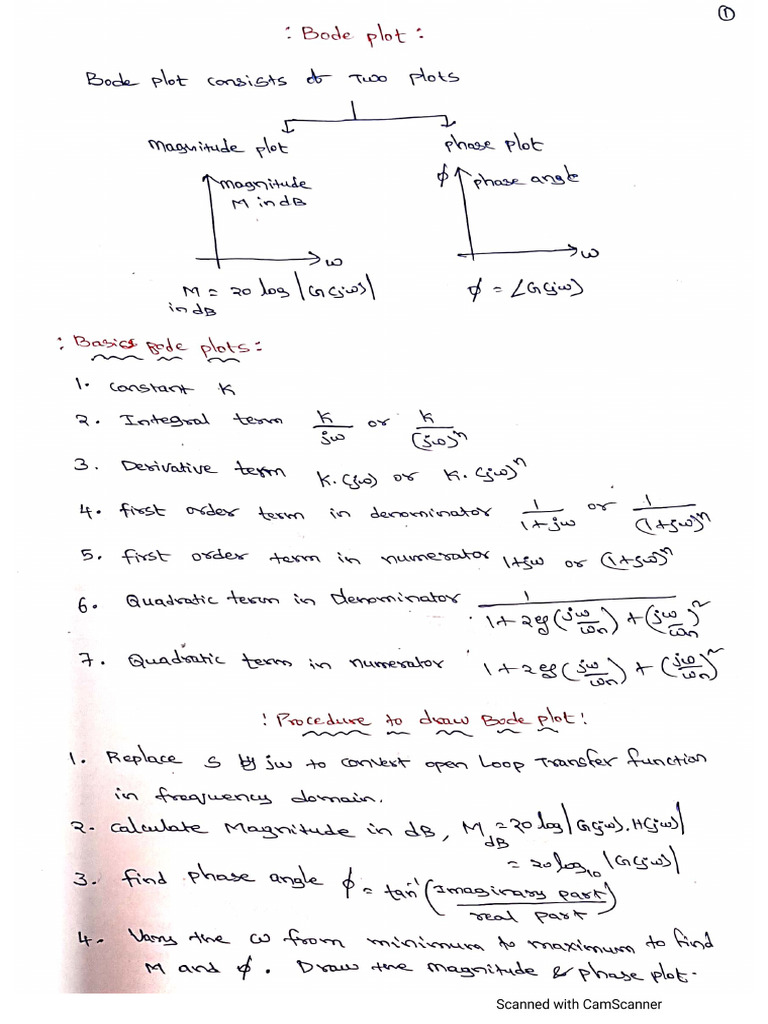 ①
: Bode plot :
Bode plot consists of Two plots
Magnitude plot
phase plot
magnitude
M in dB
ω
M = 20 log |G(jω)|
in dB
ϕ
phase angle
ω
ϕ = ∠G(jω)
: Basics Bode plots :
1. Constant K
2. Integral term K/jω or K/(jω)^n
3. Derivative term K.(jω) or K.(jω)^n
4. first order term in denominator 1/(1+jω) or 1/(1+jω)^n
5. first order term in numerator 1+jω or (1+jω)^n
6. Quadratic term in Denominator 1/(1+2ξ(jω/ωn)+(jω/ωn)^2)
7. Quadratic term in numerator 1+2ξ(jω/ωn)+(jω/ωn)^2
! Procedure to draw Bode plot !
1. Replace S by jω to convert open Loop Transfer function
in frequency domain.
2. Calculate Magnitude in dB, M dB = 20 log |G(jω).H(jω)|
= 20 log10 |G(jω)|
3. find phase angle ϕ = tan^-1 (Imaginary part/real part)
4. Vary the ω from minimum to maximum to find
M and ϕ. Draw the magnitude & phase plot.
Scanned with CamScanner